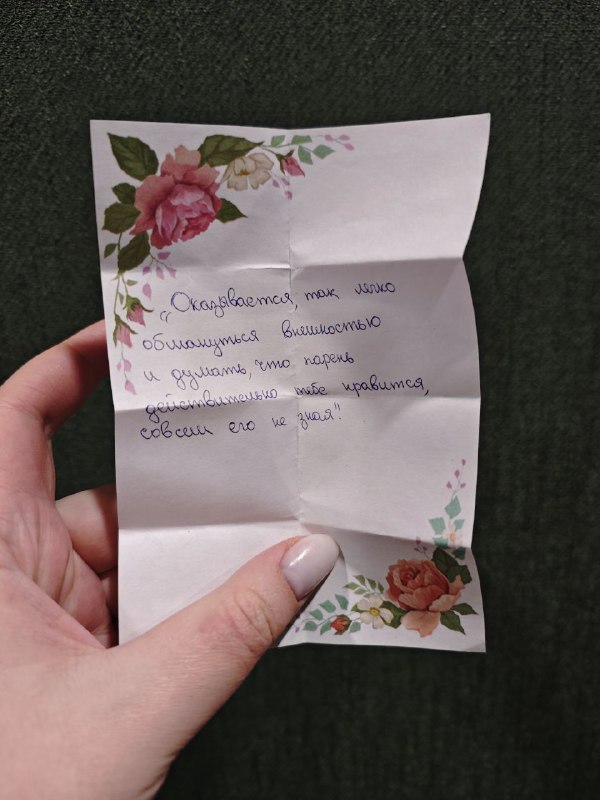 „Оказывается, так легко
обмануться внешностью
и думать, что парень
действительно тебе нравится,
совсем его не зная!"